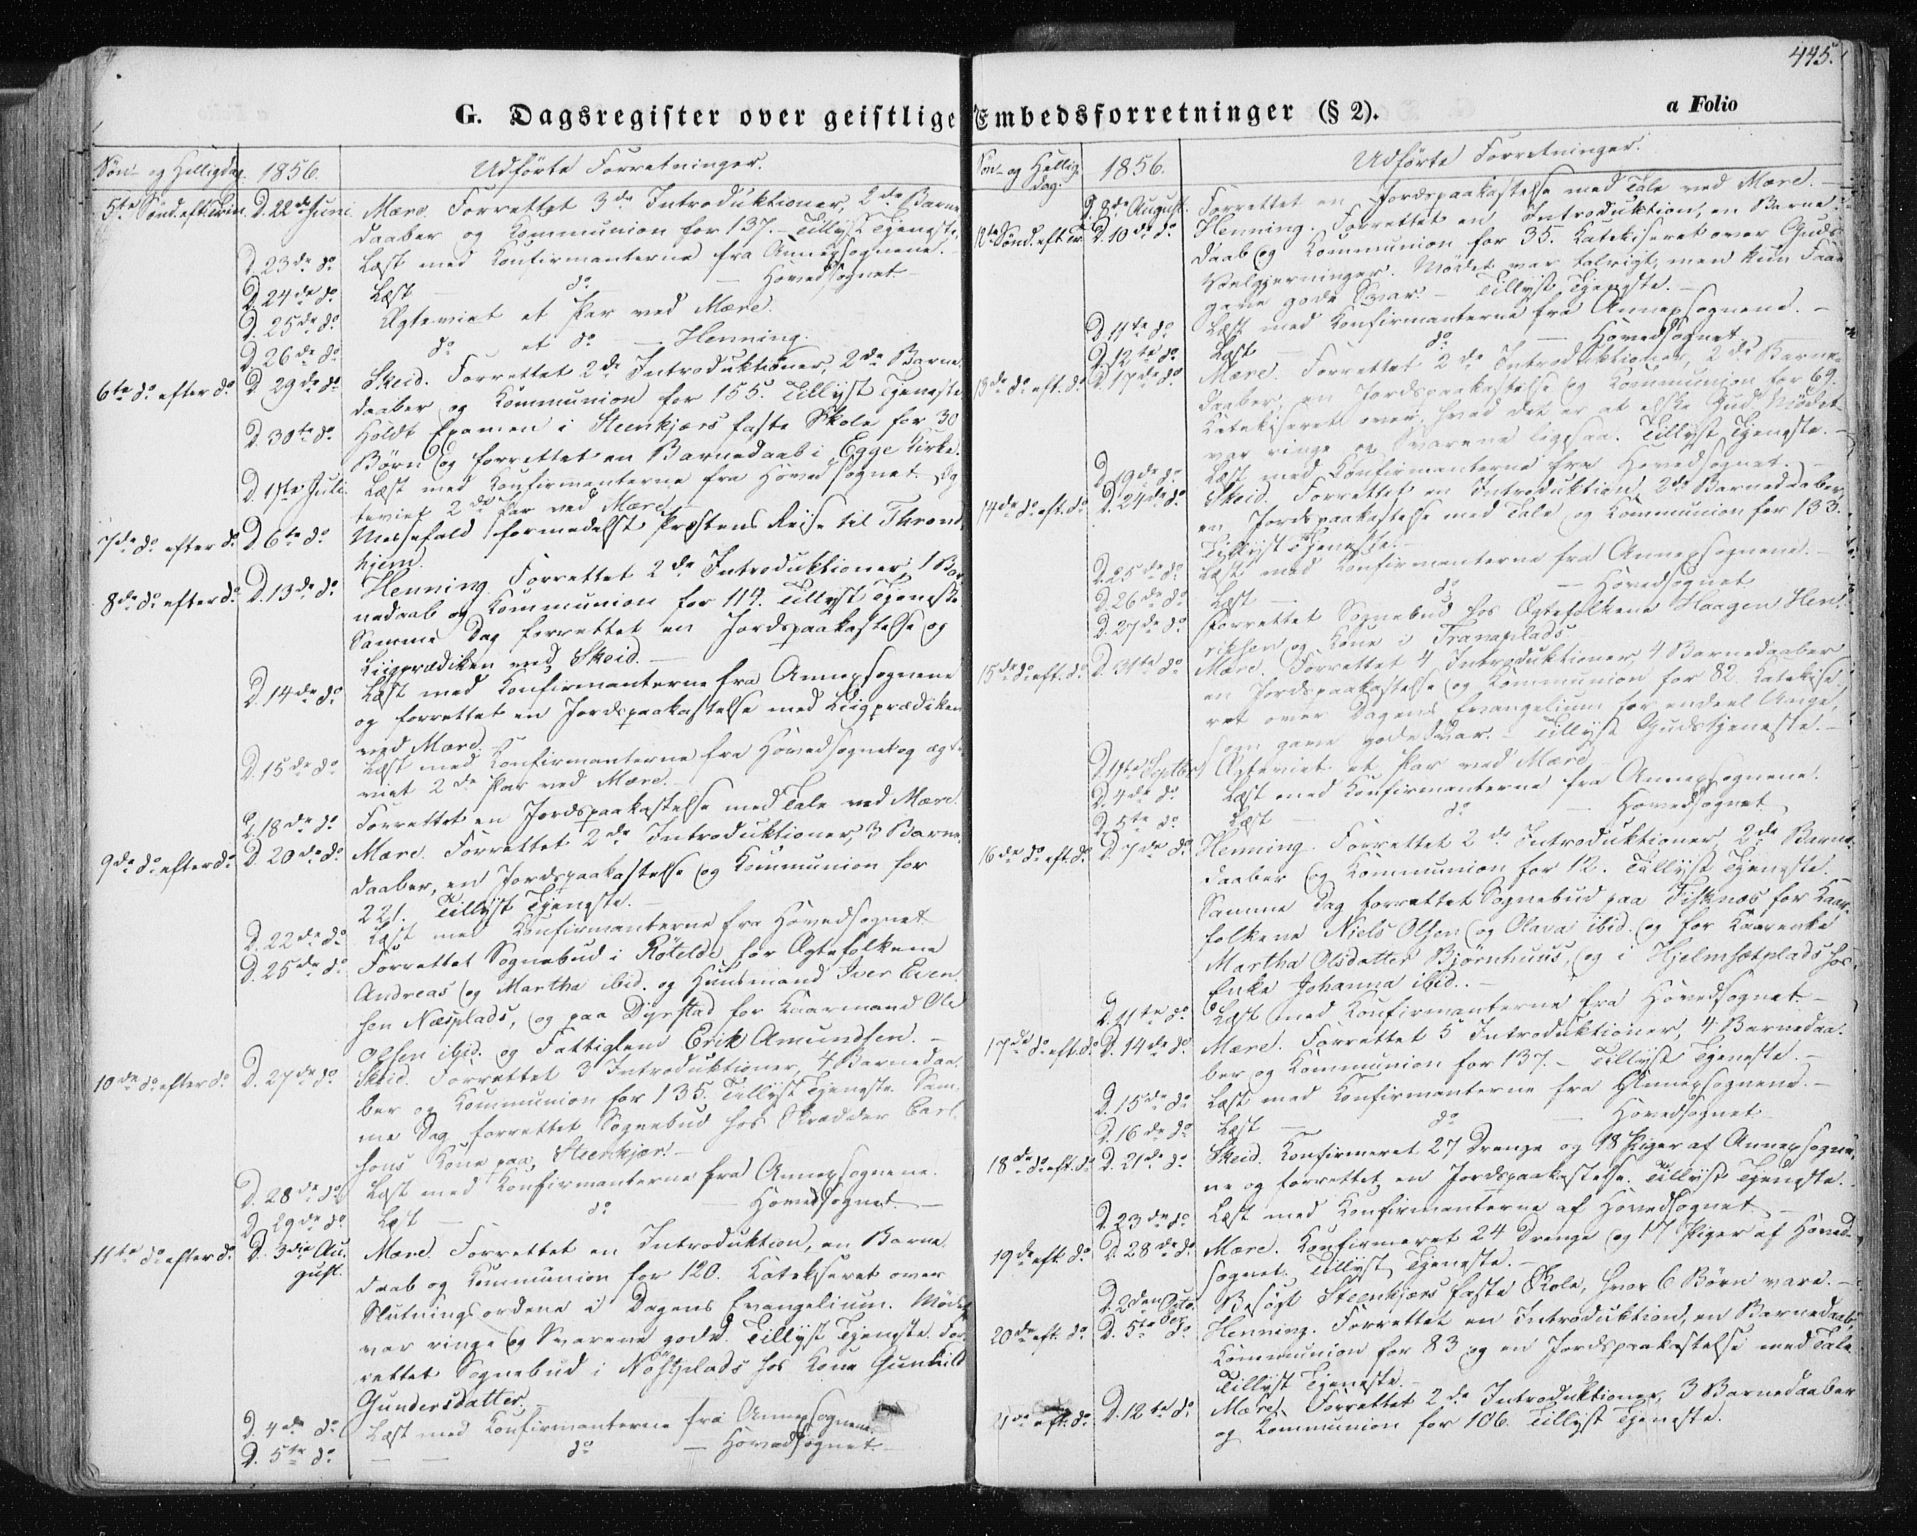 445.
G. Dagsregister over geistlige Embedsforretninger (§ 2).
a Folio
Søn- og Helligdag. 1856. Udførte Forretninger.
5te Sønd. eft. Trin. D. 22de Juni. Mære. Forrettet 3de Introduktioner, 2de Barne
daaber og Kommunion for 137. - Tillyst Tjeneste.
D. 23de do Læst med Konfirmanterne fra Annexsognene. -
D. 24de do Læst - do - Hovedsognet -
D. 25de do Ægteviet et Par ved Mære.
D. 26de do do et do - Henning.
6te do efter do D. 29de do Skeid. Forrettet 2de Introduktioner, 2de Barne
daaber og Kommunion for 155. Tillyst Tjeneste
D. 30te do Holdt Examen i Steenkjærs faste Skole for 30
Børn og forrettet en Barnedaab i Egge Kirke.
D. 1ste Juli. Læst med Konfirmanterne fra Hovedsognet. Æg
teviet 2de Par ved Mære. -
7de do efter do D. 6te do Messefald formedelst Præstens Reise til Thrond
hjem.
8de do efter do D. 13de do Henning. Forrettet 2de Introduktioner, 1 Bar
nedaab og Kommunion for 114. Tillyst Tjeneste
Samme Dag forrettet en Jordspaakastelse og
Liigprædiken ved Skeid. -
D. 14de do Læst med Konfirmanterne fra Annexsognene
og forrettet en Jordspaakastelse med Liigprædiken
ved Mære.
D. 15de do Læst med Konfirmanterne fra Hovedsognet og ægte
viet 2de Par ved Mære. -
D. 18de do Forrettet en Jordspaakastelse med Tale ved Mære.
9de do efter do D. 20de do Mære. Forrettet 2de Introduktioner, 3 Barne
daaber, en Jordspaakastelse og Kommunion for
221. Tillyst Tjeneste. -
D. 22de do Læst med Konfirmanterne fra Hovedsognet
D. 25de do Forrettet Sognebud i Røtelde for Ægtefolkene
Andreas og Martha ibid. og Huusmand Iver Even
sen Næsplads, og paa Dyrstad for Kaarmand Ole
Olsen ibid. og Fattiglem Erik Amundsen. -
10de do efter do D. 27de do Skeid. Forrettet 3 Introduktioner, 4 Barnedaa
ber og Kommunion for 135. Tillyst Tjeneste. Sam
me Dag forrettet Sognebud hos Skrædder Carl
sons Kone paa Steenkjær. -
D. 28de do Læst med Konfirmanterne fra Annexsognene.
D. 29de do Læst - do - Hovedsognet. -
11te do efter do D. 3die Au Mære. Forrettet en Introduktion, en Barne
gust. daab og Kommunion for 120. Katekiseret over
Slutningsordene i Dagens Evangelium. Mødet
var ringe og Svarene gode. Tillyst Tjeneste. For
rettet Sognebud i Nøstplads hos Kone Gunhild
Gundersdatter. -
D. 4de do Læst med Konfirmanterne fra Annexsognene
D. 5te do - - do - Hovedsognet -
Søn- og Hellig 1856. Udførte Forretninger.
dag.
D. 8de August. Forrettet en Jordspaakastelse med Tale ved Mære. -
12te Sønd. eft. Tr. D. 10de do Henning. Forrettet en Introduktion, en Barne
daab og Kommunion for 35. Katekiseret over Guds
Velgjerninger. Mødet var talrigt, men kun Faae
gave gode Svar. - Tillyst Tjeneste. -
D. 11te do Læst med Konfirmanterne fra Annexsognene. -
D. 12te do Læst - do - Hovedsognet -
13de do eft. do D. 17de do Mære. Forrettet 2de Introduktioner, 2de Barne
daaber, en Jordspaakastelse og Kommunion for 69.
Katekiseret over, hvad det er at elske Gud. Mødet
var ringe og Svarene ligesaa. Tillyst Tjeneste. -
D. 19de do Læst med Konfirmanterne fra Hovedsognet. -
14de do eft. do D. 24de do Skeid. Forrettet en Introduktion, 2de Barnedaaber,
en Jordspaakastelse med Tale og Kommunion for 133.
Tillyst Tjeneste. -
D. 25de do Læst med Konfirmanterne fra Annexsognene. -
D. 26de do Læst - do - Hovedsognet
D. 27de do Forrettet Sognebud hos Ægtefolkene Haagen Hen
riksen og Kone i Tranaplads
15de do eft. do D. 31te do Mære. Forrettet 4 Introduktioner, 4 Barnedaaber
en Jordspaakastelse og Kommunion for 82. Katekise
ret over Dagens Evangelium for endeel Unge,
som gave gode Svar. - Tillyst Gudstjeneste. -
D. 1ste Septbr Ægteviet et Par ved Mære -
D. 4de do Læst med Konfirmanterne fra Annexsognene.
D. 5te do Læst - do - Hovedsognet
16de do eft. do D. 7de do Henning. Forrettet 2de Introduktioner, 2de Barne
daaber og Kommunion for 12. Tillyst Tjeneste.
Samme Dag forrettet Sognebud paa Fisknæs for Kaar
folkene Niels Olsen og Olava ibid. og for Kaarenke
Martha Olsdatter Bjørnhuus, og i Hjelmsetplads hos
Enke Johanna ibid. -
D. 11te do Læst med Konfirmanterne fra Hovedsognet. -
17de do eft. do D. 14de do Mære. Forrettet 5 Introduktioner, 4 Barnedaa
ber og Kommunion for 137. - Tillyst Tjeneste. -
D. 15de do Læst med Konfirmanterne fra Annexsognene. -
D. 16de do Læst - do - Hovedsognet
18de do eft. do D. 21de do Skeid. Konfirmeret 27 Drenge og 18 Piger af Annexsogne
ne og forrettet en Jordspaakastelse. Tillyst Tjeneste.
D. 23de do Læst med Konfirmanterne af Hovedsognet -
19de eft. do D. 28de do Mære. Konfirmeret 24 Drenge og 17 Piger af Hoved
sognet. Tillyst Tjeneste. -
D. 2den Octo Besøgt Steenkjærs faste Skole, hvor 6 Børn vare. -
ber
20de eft. do D. 5te do Henning. Forrettet en Introduktion, en Barnedaab,
Kommunion for 83 og en Jordspaakastelse med Tale
Tillyst Tjeneste. -
21de eft. do D. 12te do Mære. Forrettet 2de Introduktioner, 3 Barnedaaber
og Kommunion for 106. Tillyst Tjeneste.